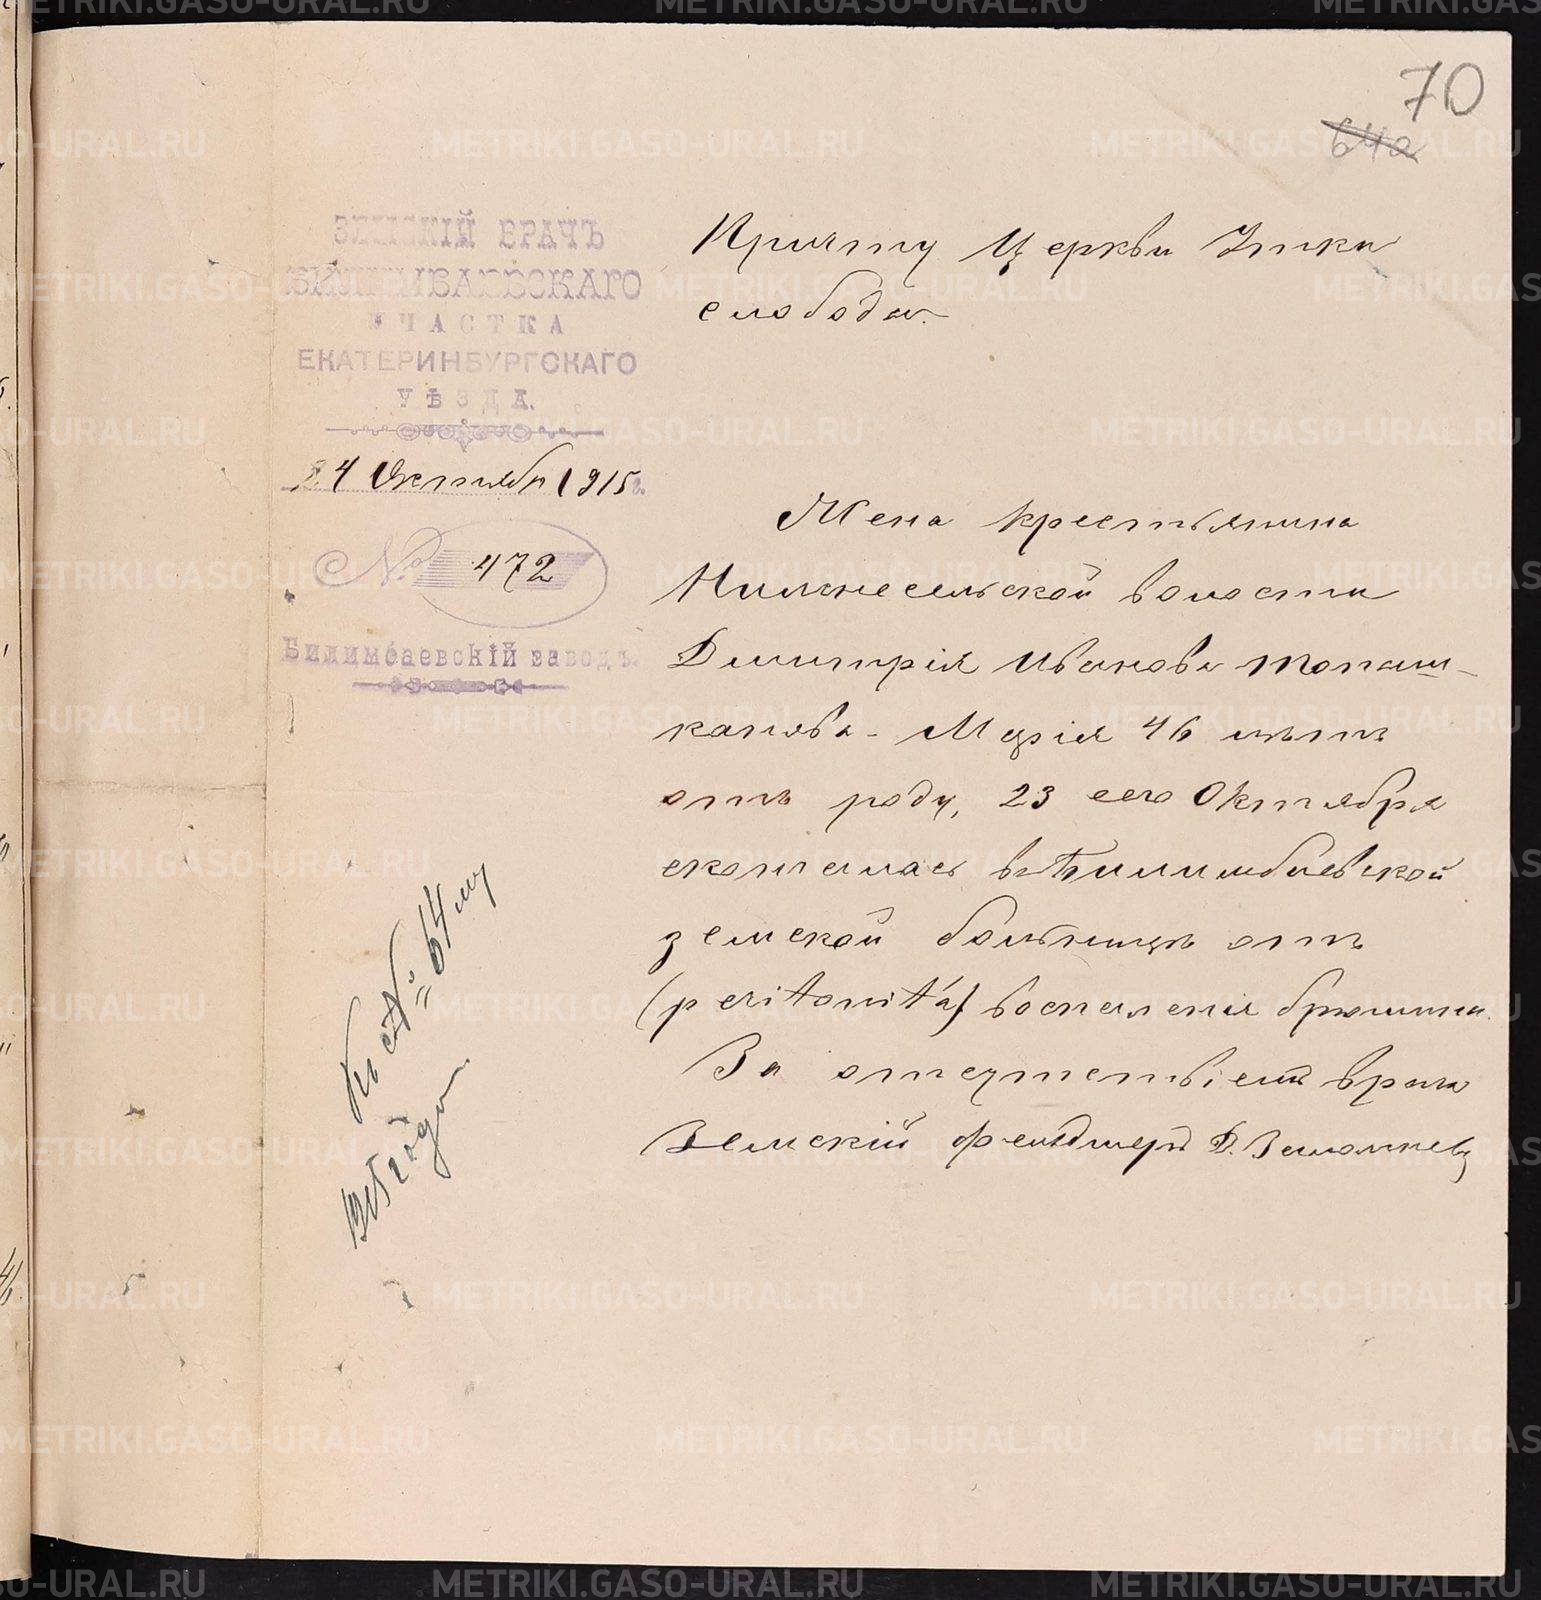 70
64а
ЗЕМСКІЙ ВРАЧЪ
БИЛИМБАЕВСКАГО
УЧАСТКА
ЕКАТЕРИНБУРГСКАГО
УѢЗДА.
24 Октября 1915г.
№ 472
Билимбаевскій заводъ.
Причту Церкви Утки
слободы.
Жена крестьянина
Нижнесельской волости
Димитрія Иванова
Марія 46 лѣтъ
отъ роду, 23 сего Октября
скончалась въ Билимбаевской
земской больницѣ отъ
(peritonit'а) воспаленія брюшины.
За отсутствіемъ врача
Земскій фельдшеръ
Къ ст № 64му
1915 года
METRIKI.GASO-URAL.RU